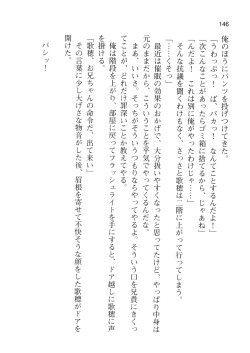 146
俺のほうにパンツを投げつけてきた。
「うわっぷっ！　ば、バカっ！　なんてことするんだよ！」
「次こんなことがあったらゴミ箱に捨てるから。じゃあね」
「んだよ！　これは別に俺がやったわけじゃ……」
そんな抗議を聞くわけもなく、さっさと歌穂は二階に上がって行ってしまう。
「……くそっ」
最近は催眠の効果のおかげで、大分扱いやすくなったと思ってたけど、やっぱり中身は
元のままだから、こういうことを平気でやってくるんだな。
まあ、いいさ。そっちがそういうつもりならやってやるよ。そういう口を兄貴にきくっ
てことが、どれだけ罪深いことか教えてやる。
俺は階段を上がり、部屋に戻ってフラッシュライトを手にすると、ドア越しに歌穂に声
を掛ける。
「歌穂、お兄ちゃんの命令だ、出て来い」
その言葉に少し大げさな物音がした後、眉根を寄せて不快そうな顔をした歌穂がドアを
開けた。
パシッ！